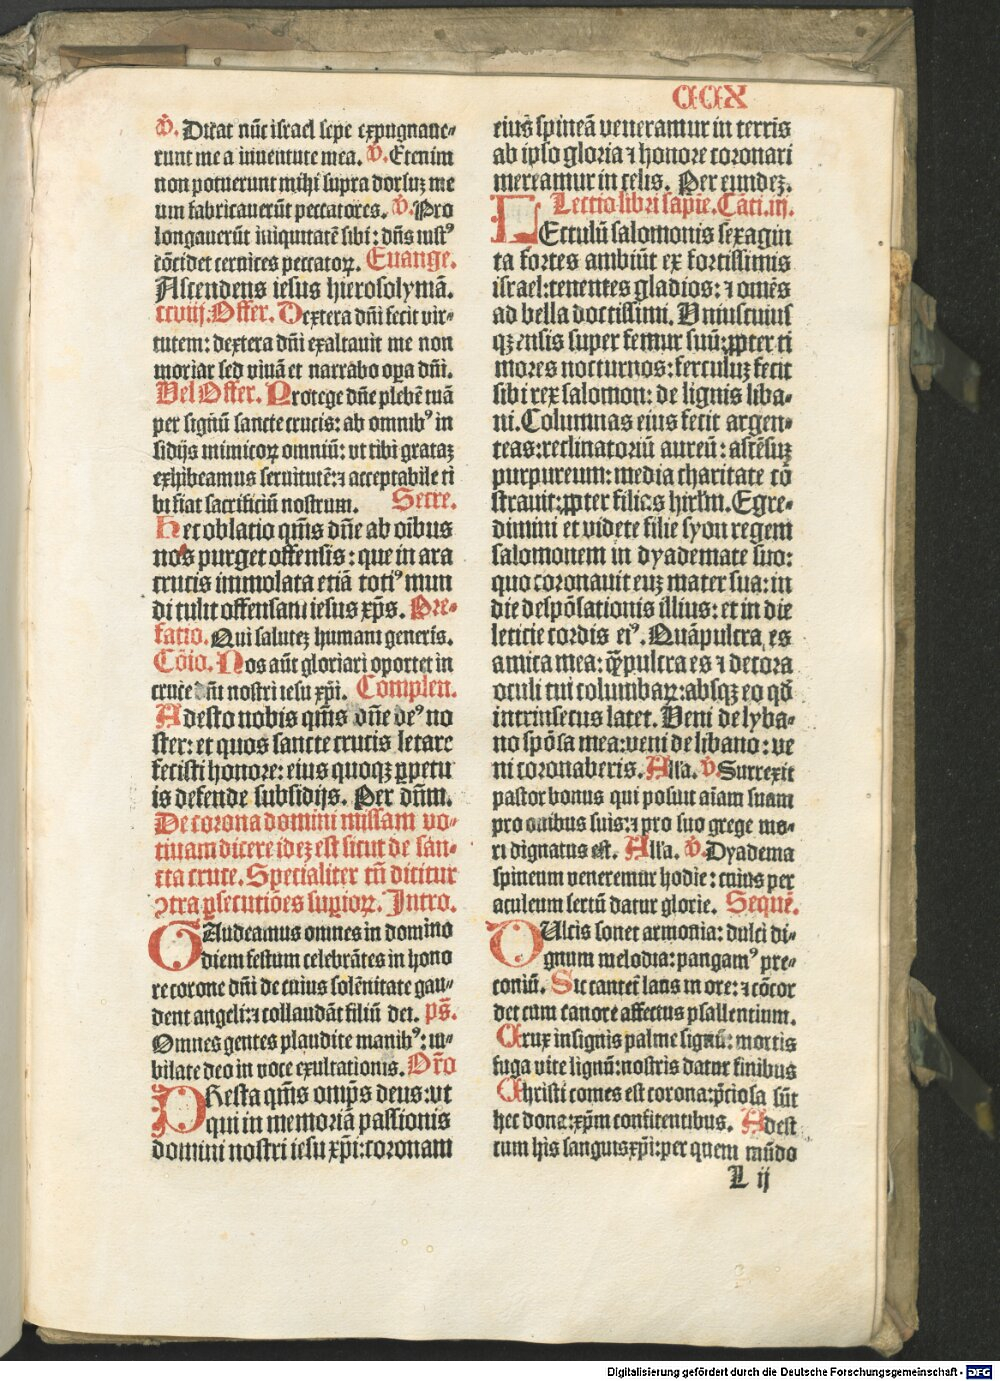 CCX
V̉. Dicat nūc israel sepe expugnaue⸗
runt me a iuuentute mea. V̉. Etenim
non potuerunt mihi supra dorsuꝫ me
um fabricauerūt peccatores. V̉. Pro
longauerūt iniquitatē sibi: dn̄s iustꝰ
cōcidet ceruices peccatoꝝ. Euange.
Ascendens iesus hierosolymā.
ccviij. Offer. Dextera dn̄i fecit vir⸗
tutem: dextera dn̄i exaltauit me non
moriar sed viuā et narrabo oꝑa dn̄i.
Vel Offer. Protege dn̄e plebē tuā
per signū sancte crucis: ab omnibꝰ in
sidijs inimicoꝝ omniū: vt tibi grataꝫ
exhibeamus seruitutē: ⁊ acceptabile ti
bi fiat sacrificiū nostrum. Secre.
Hec oblatio qm̄s dn̄e ab oībus
nos purget offensis: que in ara
crucis immolata etiā totiꝰ mun
di tulit offensam iesus xp̄s. Pre⸗
fatio. Qui saluteꝫ humani generis.
Cōio. Nos aūt gloriari oportet in
cruce dn̄i nostri iesu xp̄i. Complen.
Adesto nobis qm̄s dn̄e deꝰ no
ster: et quos sancte crucis letare
fecisti honore: eius quoqꝫ ꝑpetu
is defende subsidijs. Per dn̄m.
De corona domini missam vo⸗
tiuam dicere ideꝫ est sicut de san⸗
cta cruce. Specialiter tn̄ dicitur
ↄtra ꝑsecutiōes suꝑioꝝ. Intro.
GAudeamus omnes in domino
diem festum celebrātes in hono
re corone dn̄i de cuius solēnitate gau⸗
dent angeli: ⁊ collaudāt filiū dei. ps̄.
Omnes gentes plaudite manibꝰ: iu⸗
bilate deo in voce exultationis. Or̄o
PResta qm̄s omp̄s deus: vt
qui in memoriā passionis
domini nostri iesu xp̄i: coronam
eius spineā veneramur in terris
ab ipso gloria ⁊ honore coronari
mereamur in celis. Per eundeꝫ.
Lectio libri sapīe. Cāti. iij.
FErculū salomonis sexagin
ta fortes ambiūt ex fortissimis
israel: tenentes gladios: ⁊ omēs
ad bella doctissimi. Vniuscuius
qꝫ ensis super femur suū: ꝓpter ti
mores nocturnos: ferculuꝫ fecit
sibi rex salomon: de lignis liba⸗
ni. Columnas eius fecit argen⸗
teas: reclinatoriū aureū: ascēsuꝫ
purpureum: media charitate cō
strauit: ꝓpter filias hirl̄m. Egre⸗
dimini et videte filie syon regem
salomonem in dyademate suo:
quo coronauit euꝫ mater sua: in
die despōsationis illius: et in die
leticie cordis eiꝰ. Quā pulcra es
amica mea: q̄ꝫ pulcra es ⁊ decora
oculi tui columbaꝝ: absqꝫ eo qd̄
intrinsecus latet. Veni de lyba⸗
no spōsa mea: veni de libano: ve
ni coronaberis. All'a. V̉. Surrexit
pastor bonus qui posuit aīam suam
pro ouibus suis: ⁊ pro suo grege mo⸗
ri dignatus est. All'a. V̉. Dyadema
spineum veneremur hodie: cuius per
aculeum sertū datur glorie. Sequē.
DUlcis sonet armonia: dulci di⸗
gnum melodia: pangamꝰ pre⸗
coniū. Sic cantet laus in ore: ⁊ cōcor
det cum canore affectus psallentium.
Crux insignis palme signū: mortis
fuga vite lignū: nostris datur finibus
Christi comes est corona: p̄ciosa sūt
hec dona: xp̄m confitentibus. Adest
cum his sanguis xp̄i: per quem mūdo
L ij
Digitalisierung gefördert durch die Deutsche Forschungsgemeinschaft - DFG